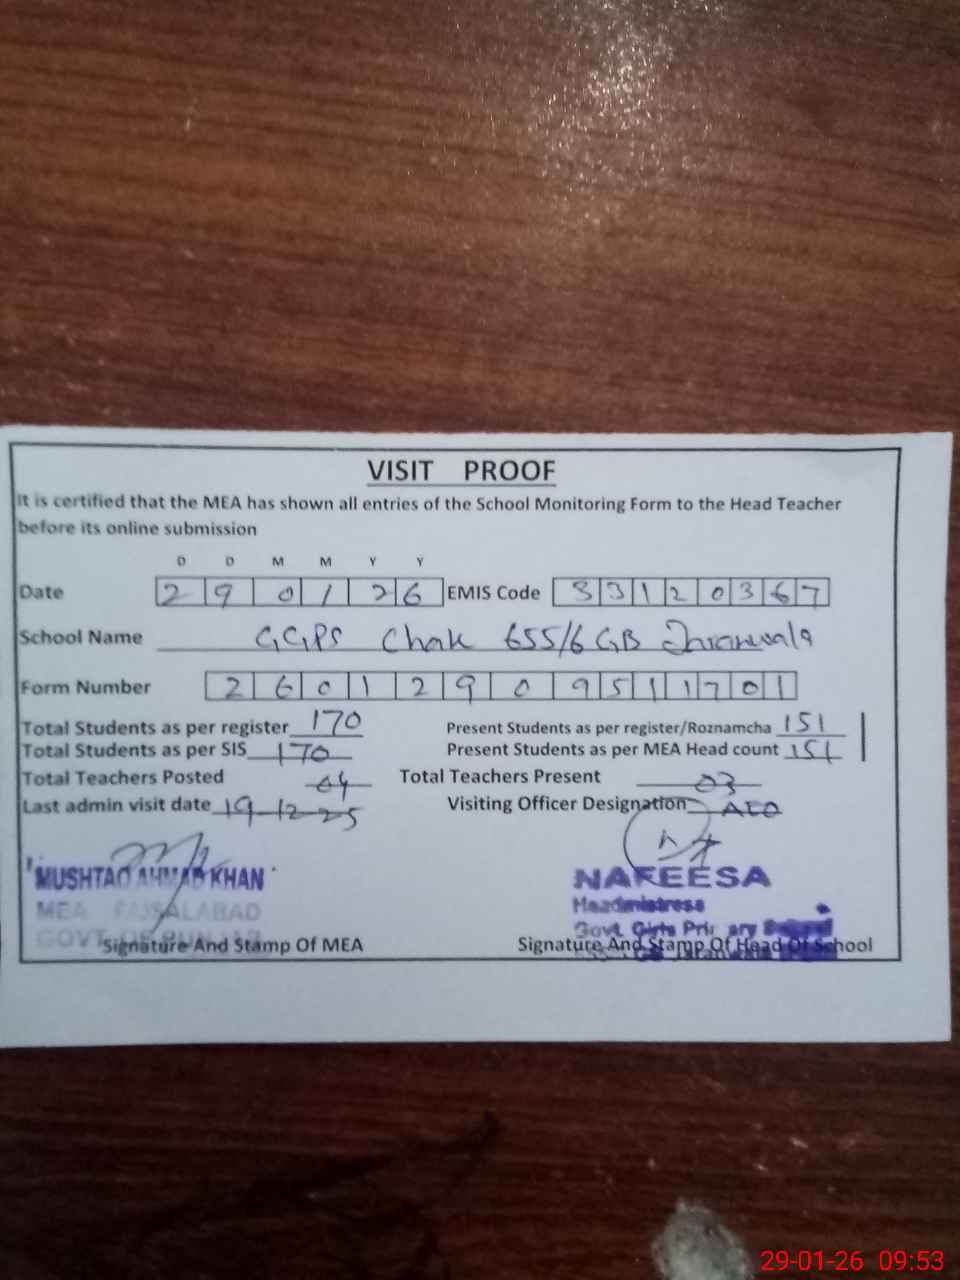 VISIT PROOF
It is certified that the MEA has shown all entries of the School Monitoring Form to the Head Teacher
before its online submission
D D M M Y Y
Date 2 9 0 1 2 6 EMIS Code 3 3 1 2 0 3 6 7
School Name GGPS Chak 655/6 GB Jaranwala
Form Number 2 6 0 1 2 9 0 9 5 1 1 7 0 1
Total Students as per register 170 Present Students as per register/Roznamcha 151
Total Students as per SIS 170 Present Students as per MEA Head count 151
Total Teachers Posted 04 Total Teachers Present 03
Last admin visit date 19-12-25 Visiting Officer Designation AEO
MUSHTAQ AHMAD KHAN NAFEESA
MEA FAISALABAD Headmistress
GOVT OF PUNJAB Govt. Girls Primary School
Signature And Stamp Of MEA Signature And Stamp Of Head Of School
Jaranwala
29-01-26 09:53